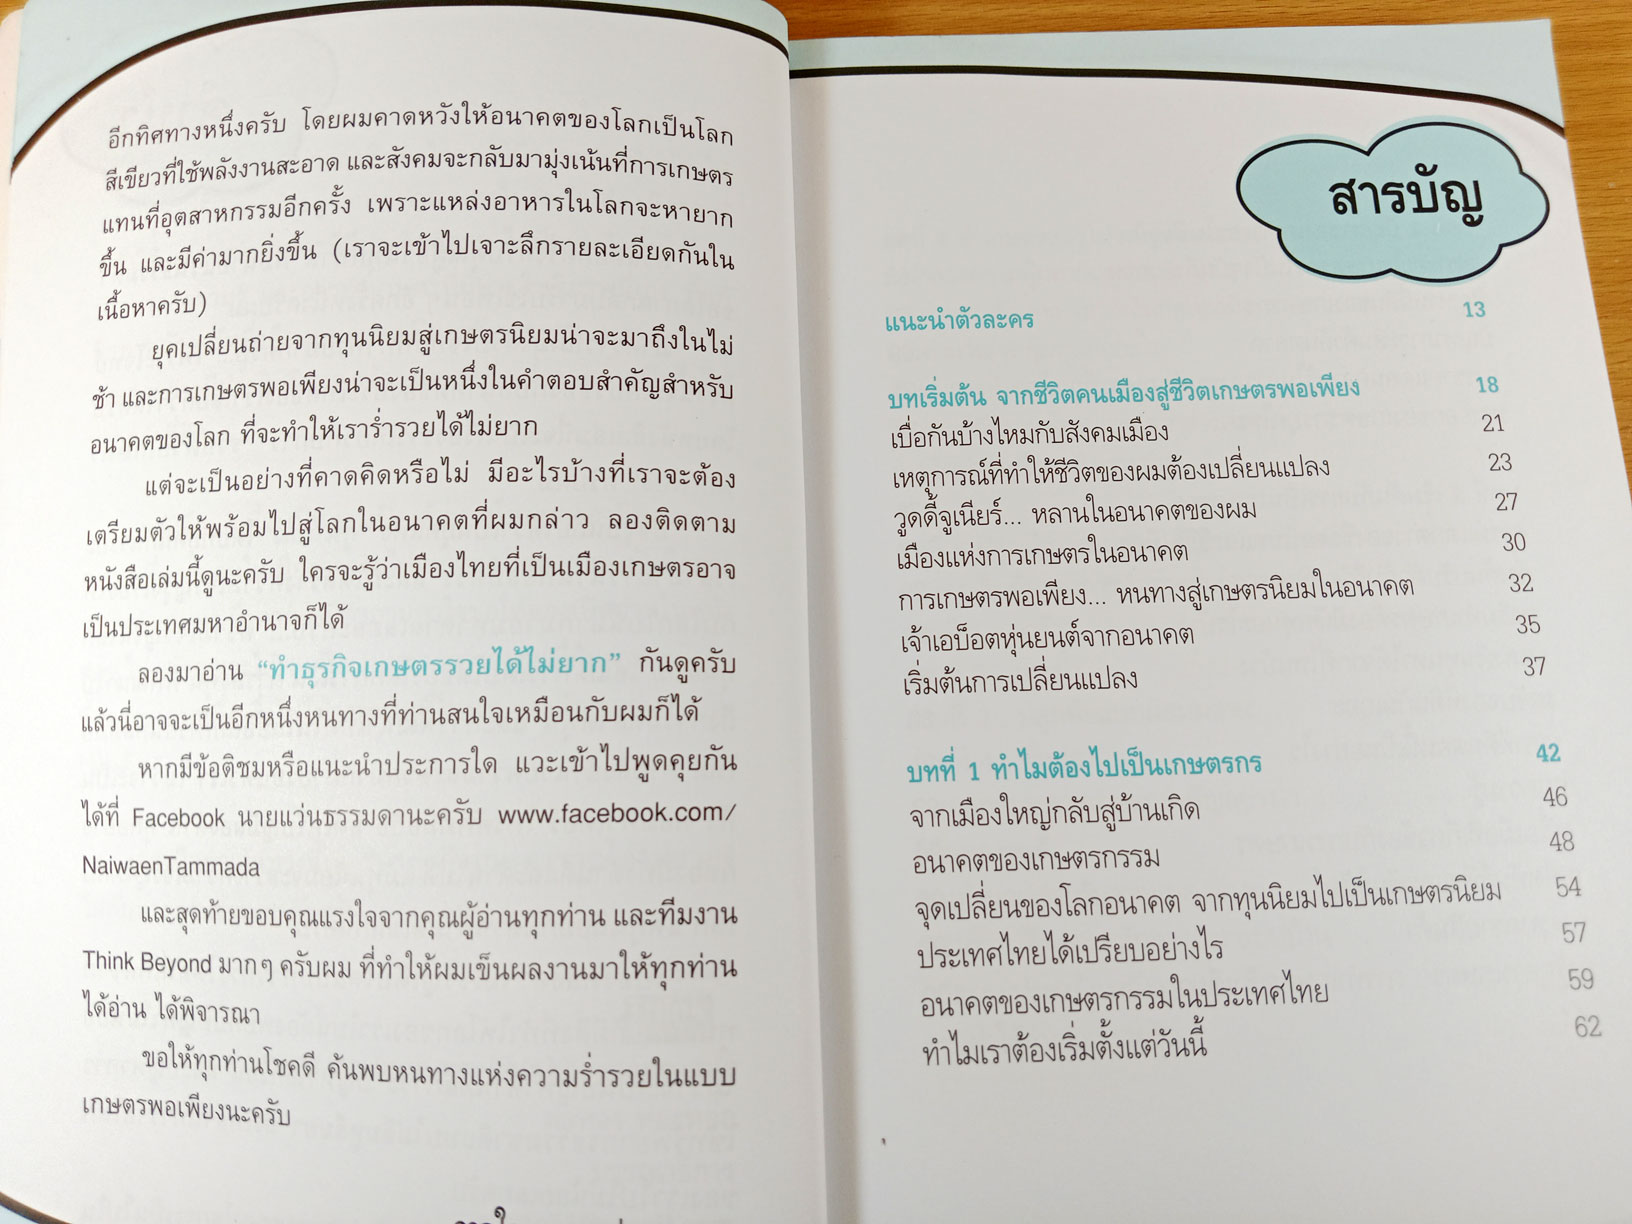 อีกทิศทางหนึ่งครับ โดยผมคาดหวังให้อนาคตของโลกเป็นโลก
สีเขียวที่ใช้พลังงานสะอาด และสังคมจะกลับมามุ่งเน้นที่การเกษตร
แทนที่อุตสาหกรรมอีกครั้ง เพราะแหล่งอาหารในโลกจะหายาก
ขึ้น และมีค่ามากยิ่งขึ้น (เราจะเข้าไปเจาะลึกรายละเอียดกันใน
เนื้อหาครับ)
ยุคเปลี่ยนถ่ายจากทุนนิยมสู่เกษตรนิยมน่าจะมาถึงในไม่
ช้า และการเกษตรพอเพียงน่าจะเป็นหนึ่งในคำตอบสำคัญสำหรับ
อนาคตของโลก ที่จะทำให้เราร่ำรวยได้ไม่ยาก
แต่จะเป็นอย่างที่คาดคิดหรือไม่ มีอะไรบ้างที่เราจะต้อง
เตรียมตัวให้พร้อมไปสู่โลกในอนาคตที่ผมกล่าว ลองติดตาม
หนังสือเล่มนี้ดูนะครับ ใครจะรู้ว่าเมืองไทยที่เป็นเมืองเกษตรอาจ
เป็นประเทศมหาอำนาจก็ได้
ลองมาอ่าน “ทำธุรกิจเกษตรรวยได้ไม่ยาก” กันดูครับ
แล้วนี่อาจจะเป็นอีกหนึ่งหนทางที่ท่านสนใจเหมือนกับผมก็ได้
หากมีข้อติชมหรือแนะนำประการใด แวะเข้าไปพูดคุยกัน
ได้ที่ Facebook นายแว่นธรรมดานะครับ www.facebook.com/
NaiwaenTammada
และสุดท้ายขอบคุณแรงใจจากคุณผู้อ่านทุกท่าน และทีมงาน
Think Beyond มากๆ ครับผม ที่ทำให้ผมเข็นผลงานมาให้ทุกท่าน
ได้อ่าน ได้พิจารณา
ขอให้ทุกท่านโชคดี ค้นพบหนทางแห่งความร่ำรวยในแบบ
เกษตรพอเพียงนะครับ
สารบัญ
แนะนำตัวละคร 13
บทเริ่มต้น จากชีวิตคนเมืองสู่ชีวิตเกษตรพอเพียง 18
เบื่อกันบ้างไหมกับสังคมเมือง 21
เหตุการณ์ที่ทำให้ชีวิตของผมต้องเปลี่ยนแปลง 23
วูดดี้จูเนียร์... หลานในอนาคตของผม 27
เมืองแห่งการเกษตรในอนาคต 30
การเกษตรพอเพียง... หนทางสู่เกษตรนิยมในอนาคต 32
เจ้าเอบ็อตหุ่นยนต์จากอนาคต 35
เริ่มต้นการเปลี่ยนแปลง 37
บทที่ 1 ทำไมต้องไปเป็นเกษตรกร 42
จากเมืองใหญ่กลับสู่บ้านเกิด 46
อนาคตของเกษตรกรรม 48
จุดเปลี่ยนของโลกอนาคต จากทุนนิยมไปเป็นเกษตรนิยม 54
ประเทศไทยได้เปรียบอย่างไร 57
อนาคตของเกษตรกรรมในประเทศไทย 59
ทำไมเราต้องเริ่มตั้งแต่วันนี้ 62